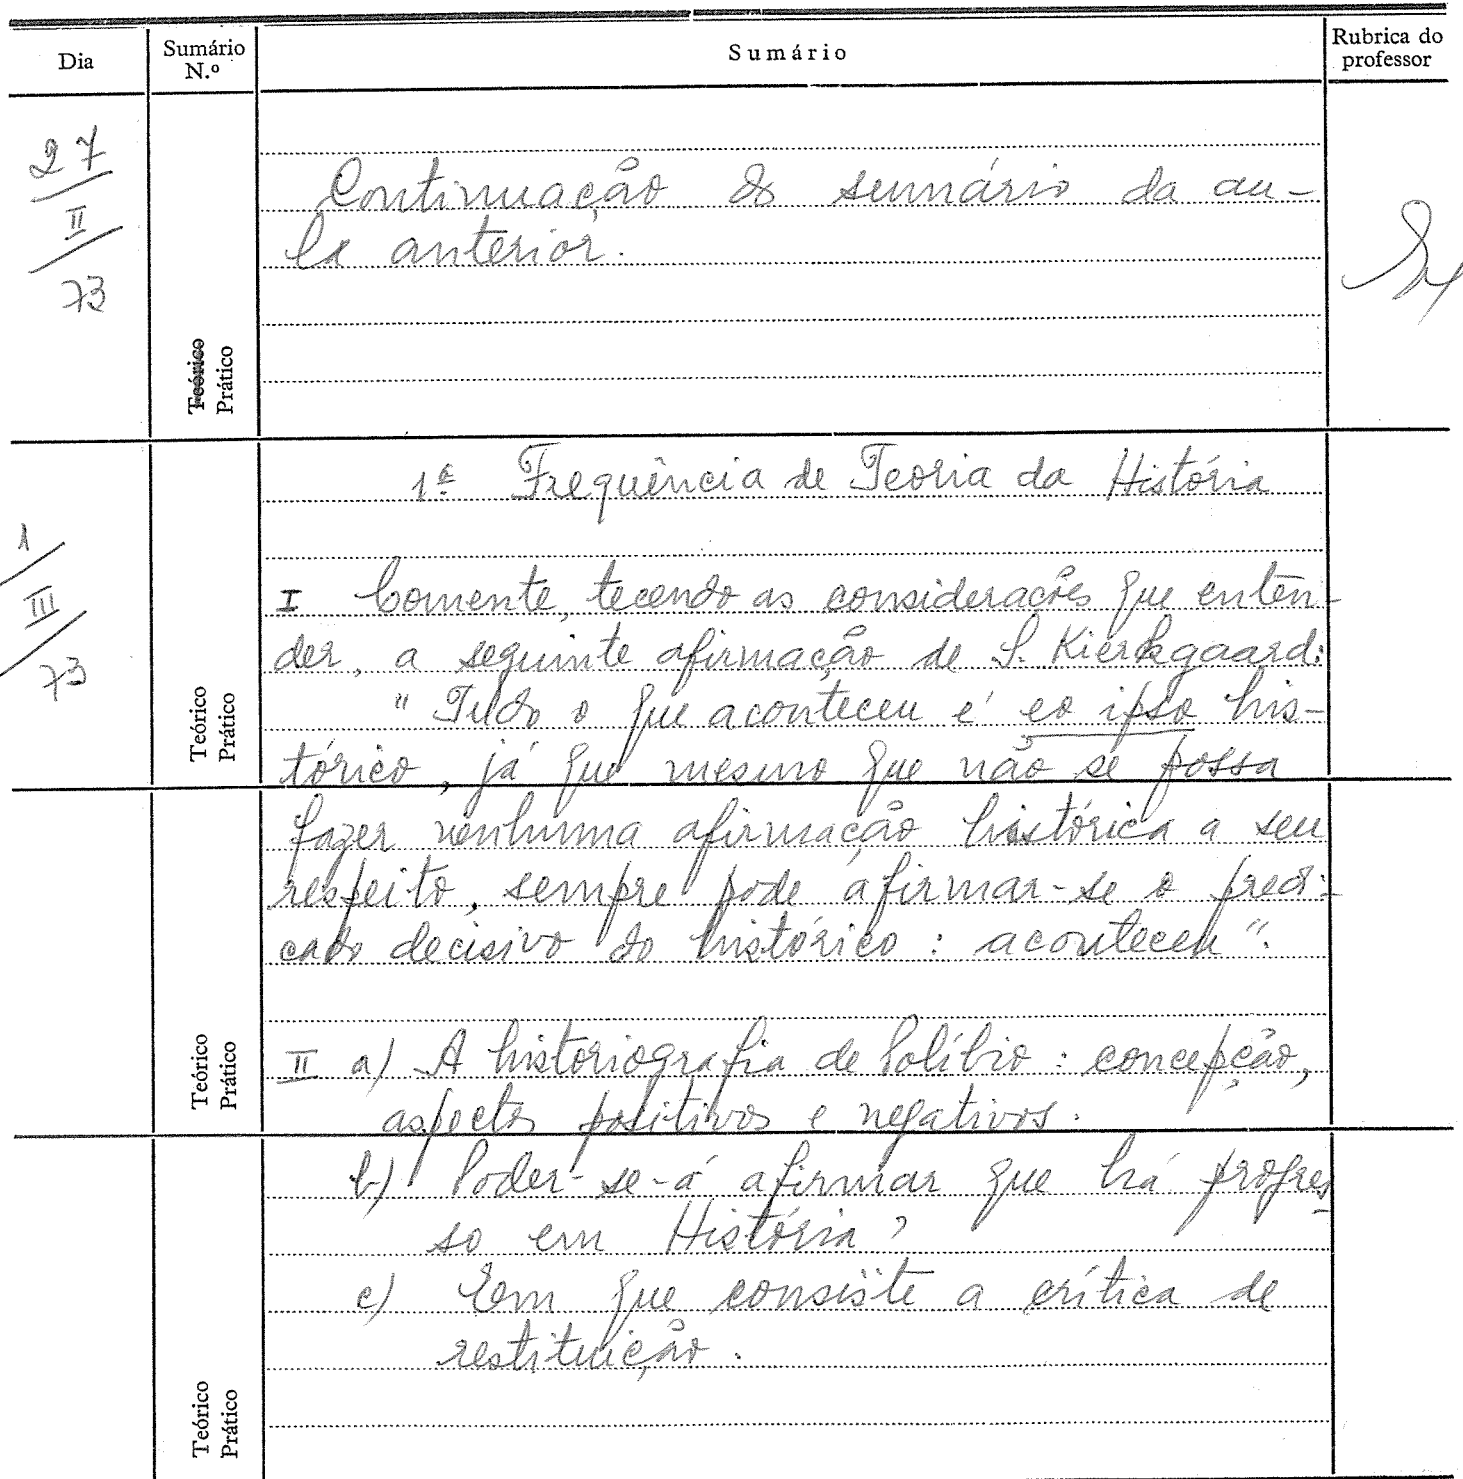 Dia
Sumário
N.º
Sumário
Rubrica do
professor
27
II
73
Continuação do sumário da au-
la anterior.
Teórico
Prático
1
III
73
1ª Frequência de Teoria da História
I Comente, tecendo as considerações que enten-
der, a seguinte afirmação de S. Kierkgaard:
" Tudo o que aconteceu é eo ipso his-
tórico, já que mesmo que não se possa
Teórico
Prático
fazer nenhuma afirmação histórica a seu
respeito, sempre pode afirmar-se o predi-
cado decisivo do histórico : aconteceu".
II a) A historiografia de Políbio : concepção,
aspectos positivos e negativos.
Teórico
Prático
b) Poder-se-á afirmar que há progres-
so em História?
c) Em que consiste a crítica de
restituição.
Teórico
Prático